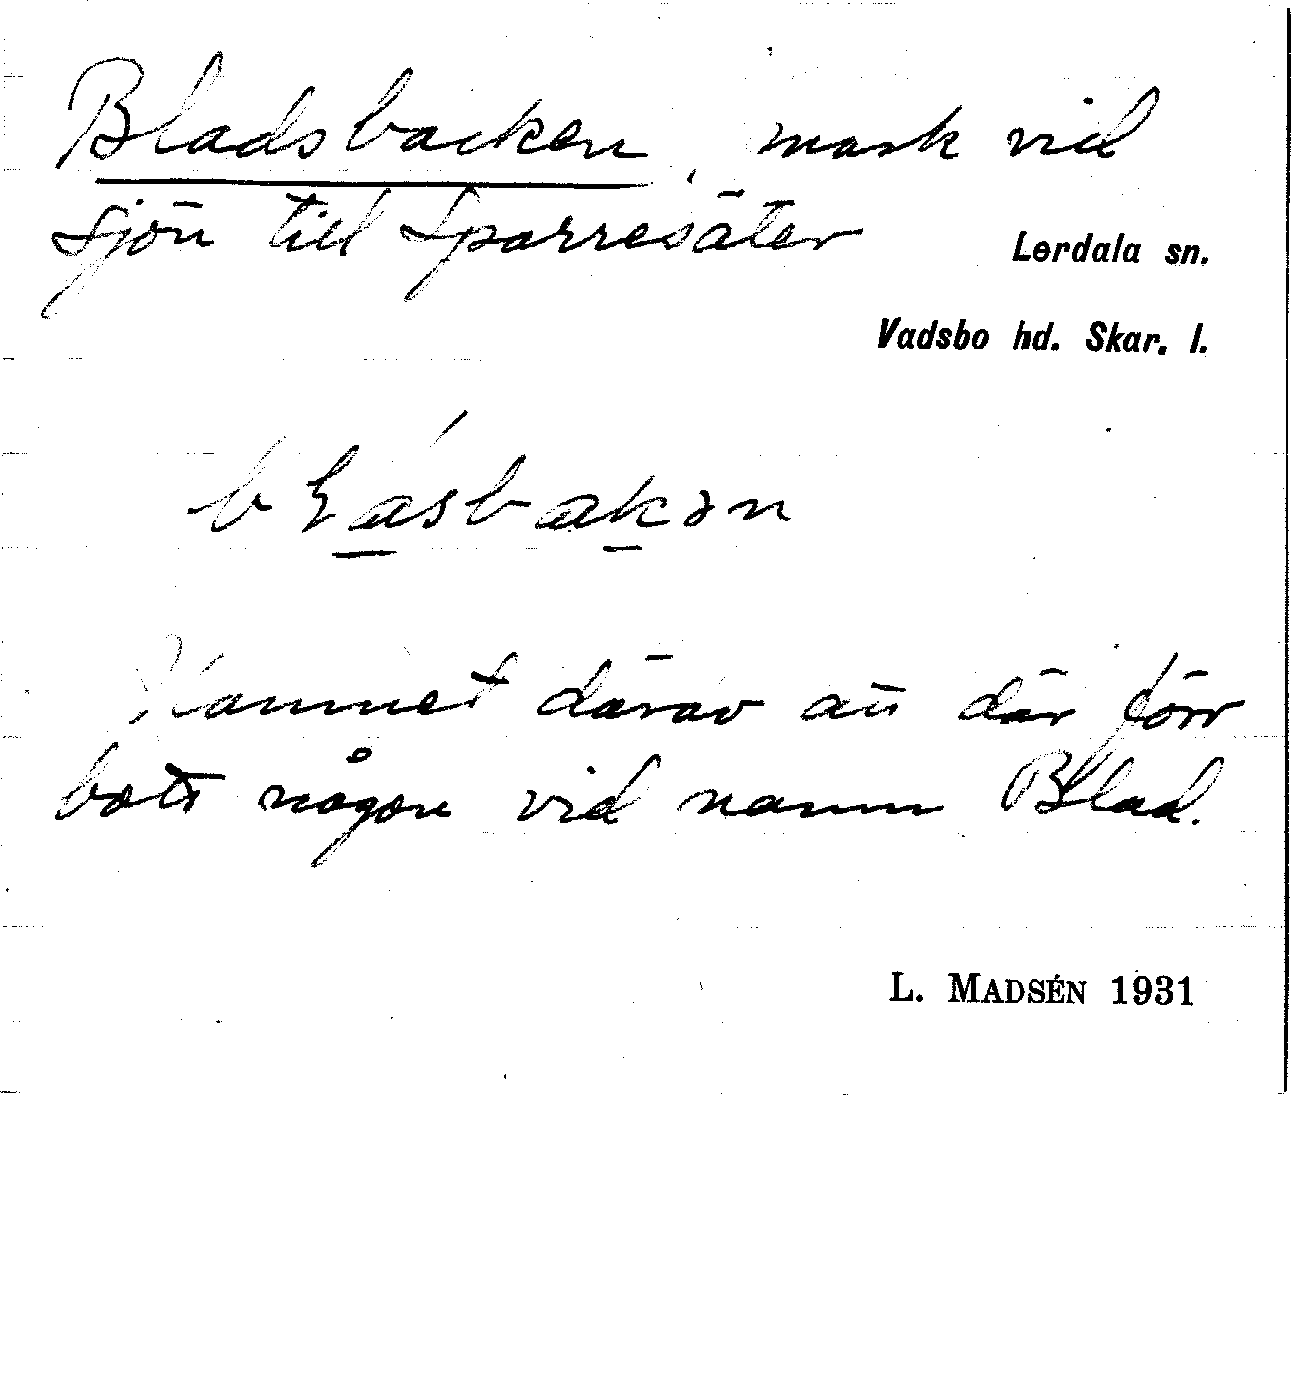 Bladsbacken, mark vid
sjön till Sparresäter
Lerdala sn.
Vadsbo hd. Skar. l.
Namnet därav att där förr
bott någon vid namn Blad.
L. MADSÉN 1931